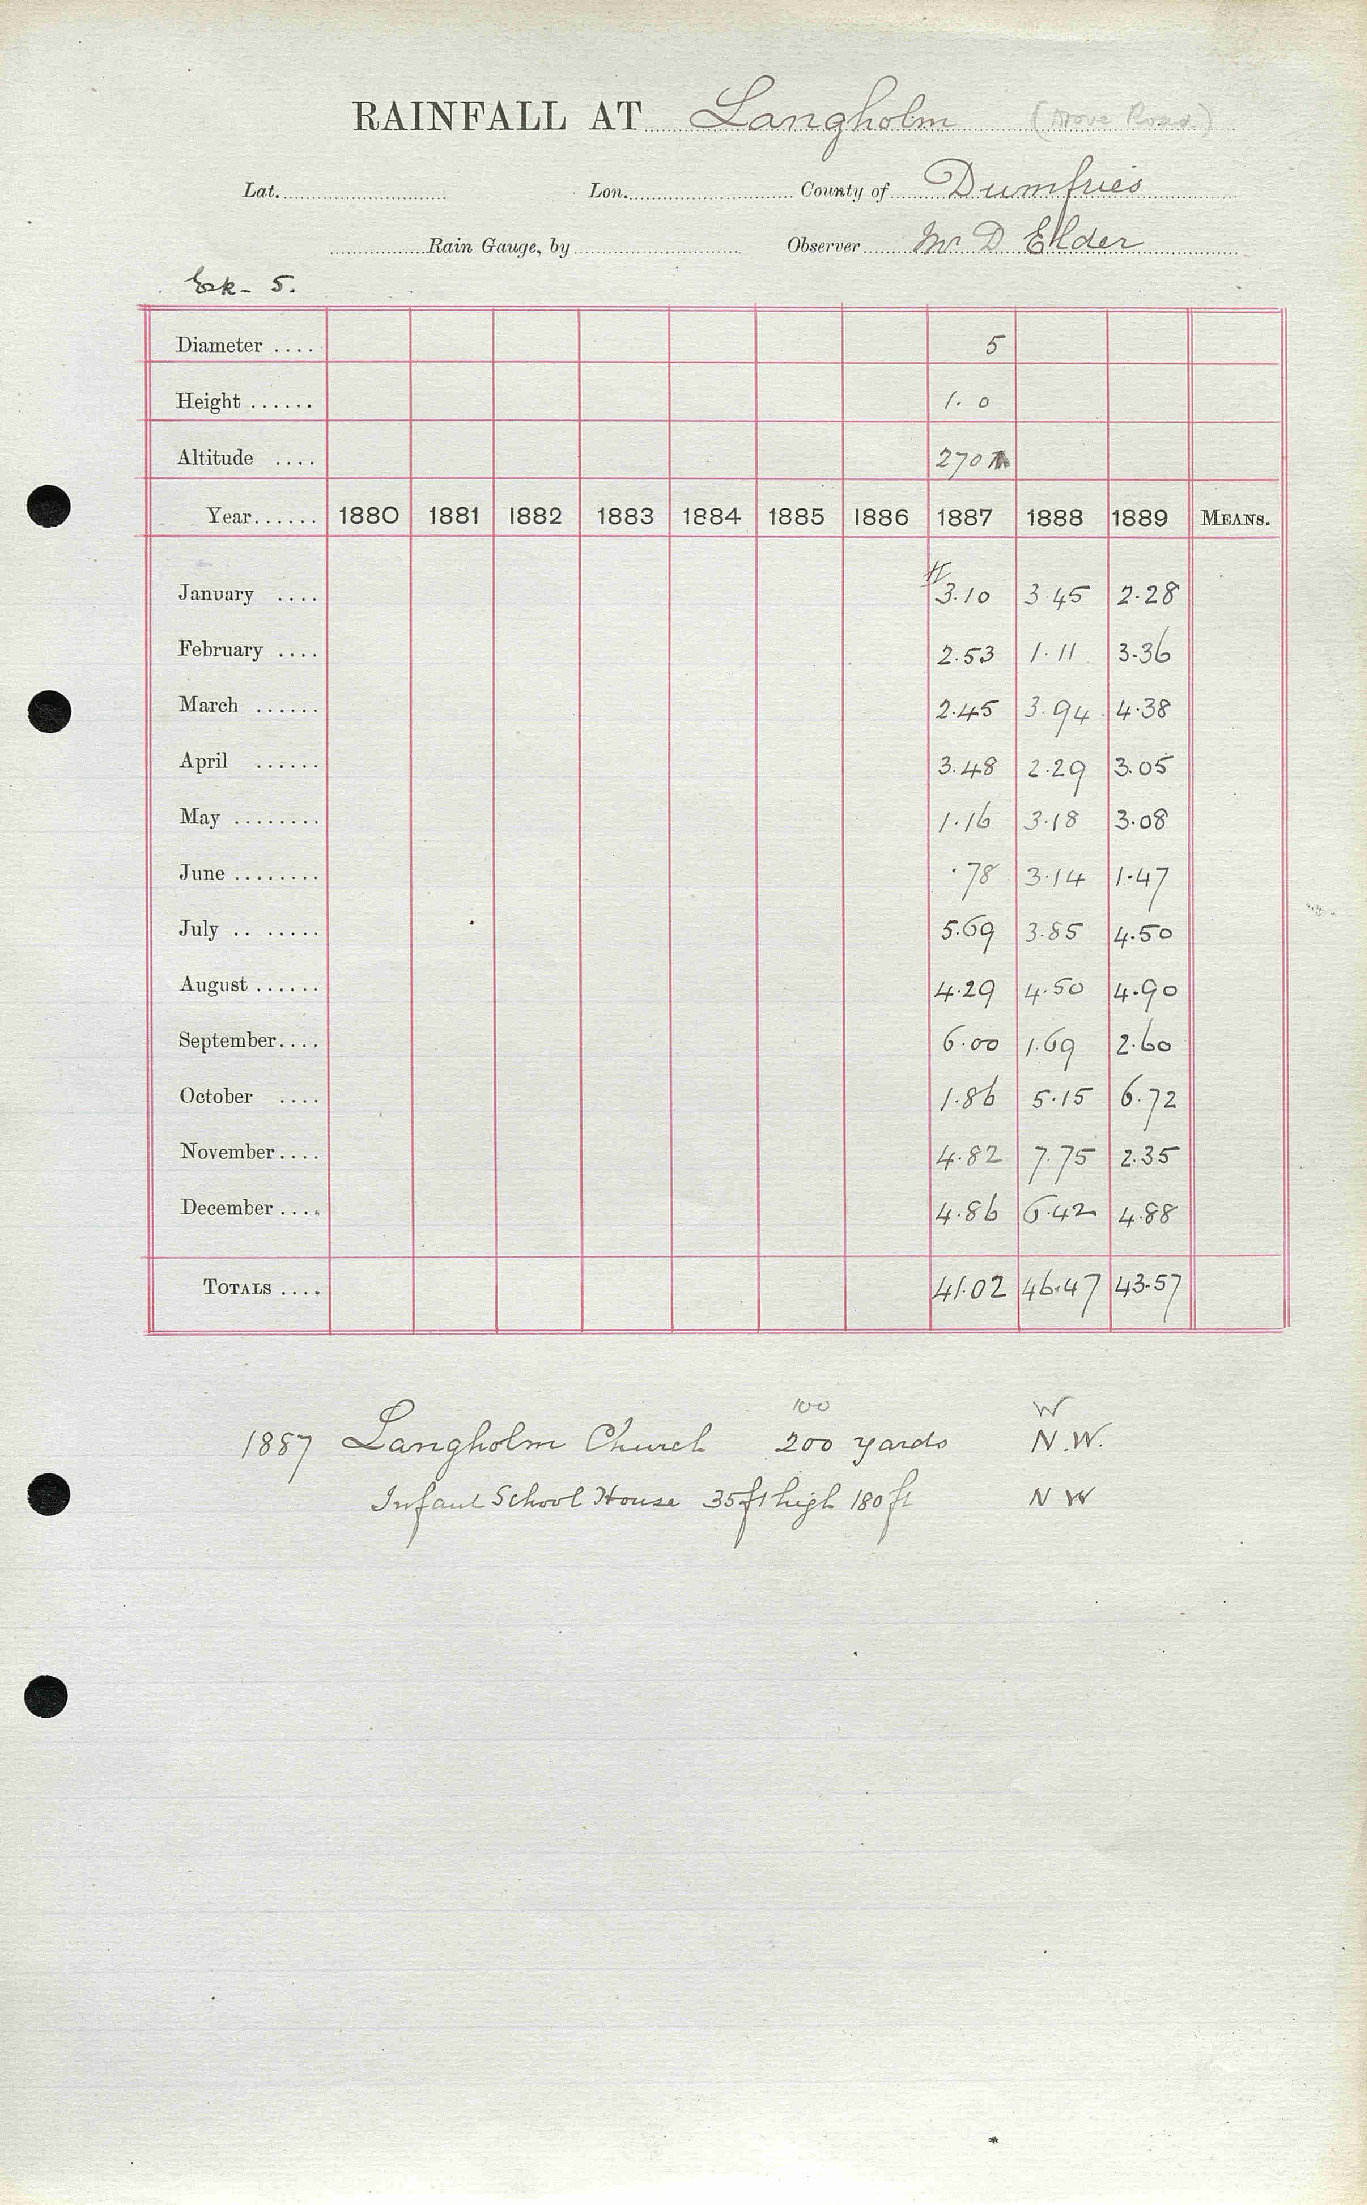 RAINFALL AT Langholm (Drove Road)
Lat. Lon. County of Dumfries
Rain Gauge, by Observer Mr D Elder
Esk - 5.
Diameter .... 5
Height ...... 1. 0
Altitude .... 270
Year...... 1880 1881 1882 1883 1884 1885 1886 1887 1888 1889 MEANS.
January .... 3.10 3.45 2.28
February .... 2.53 1.11 3.36
March ...... 2.45 3.94 4.38
April ...... 3.48 2.29 3.05
May ........ 1.16 3.18 3.08
June ........ .78 3.14 1.47
July .. ...... 5.69 3.85 4.50
August ...... 4.29 4.50 4.90
September.... 6.00 1.69 2.60
October .... 1.86 5.15 6.72
November.... 4.82 7.75 2.35
December .... 4.86 6.42 4.88
TOTALS .... 41.02 46.47 43.57
100 W
1887 Langholm Church 200 yards N.W.
Infant School House 35ft high 180 ft N W